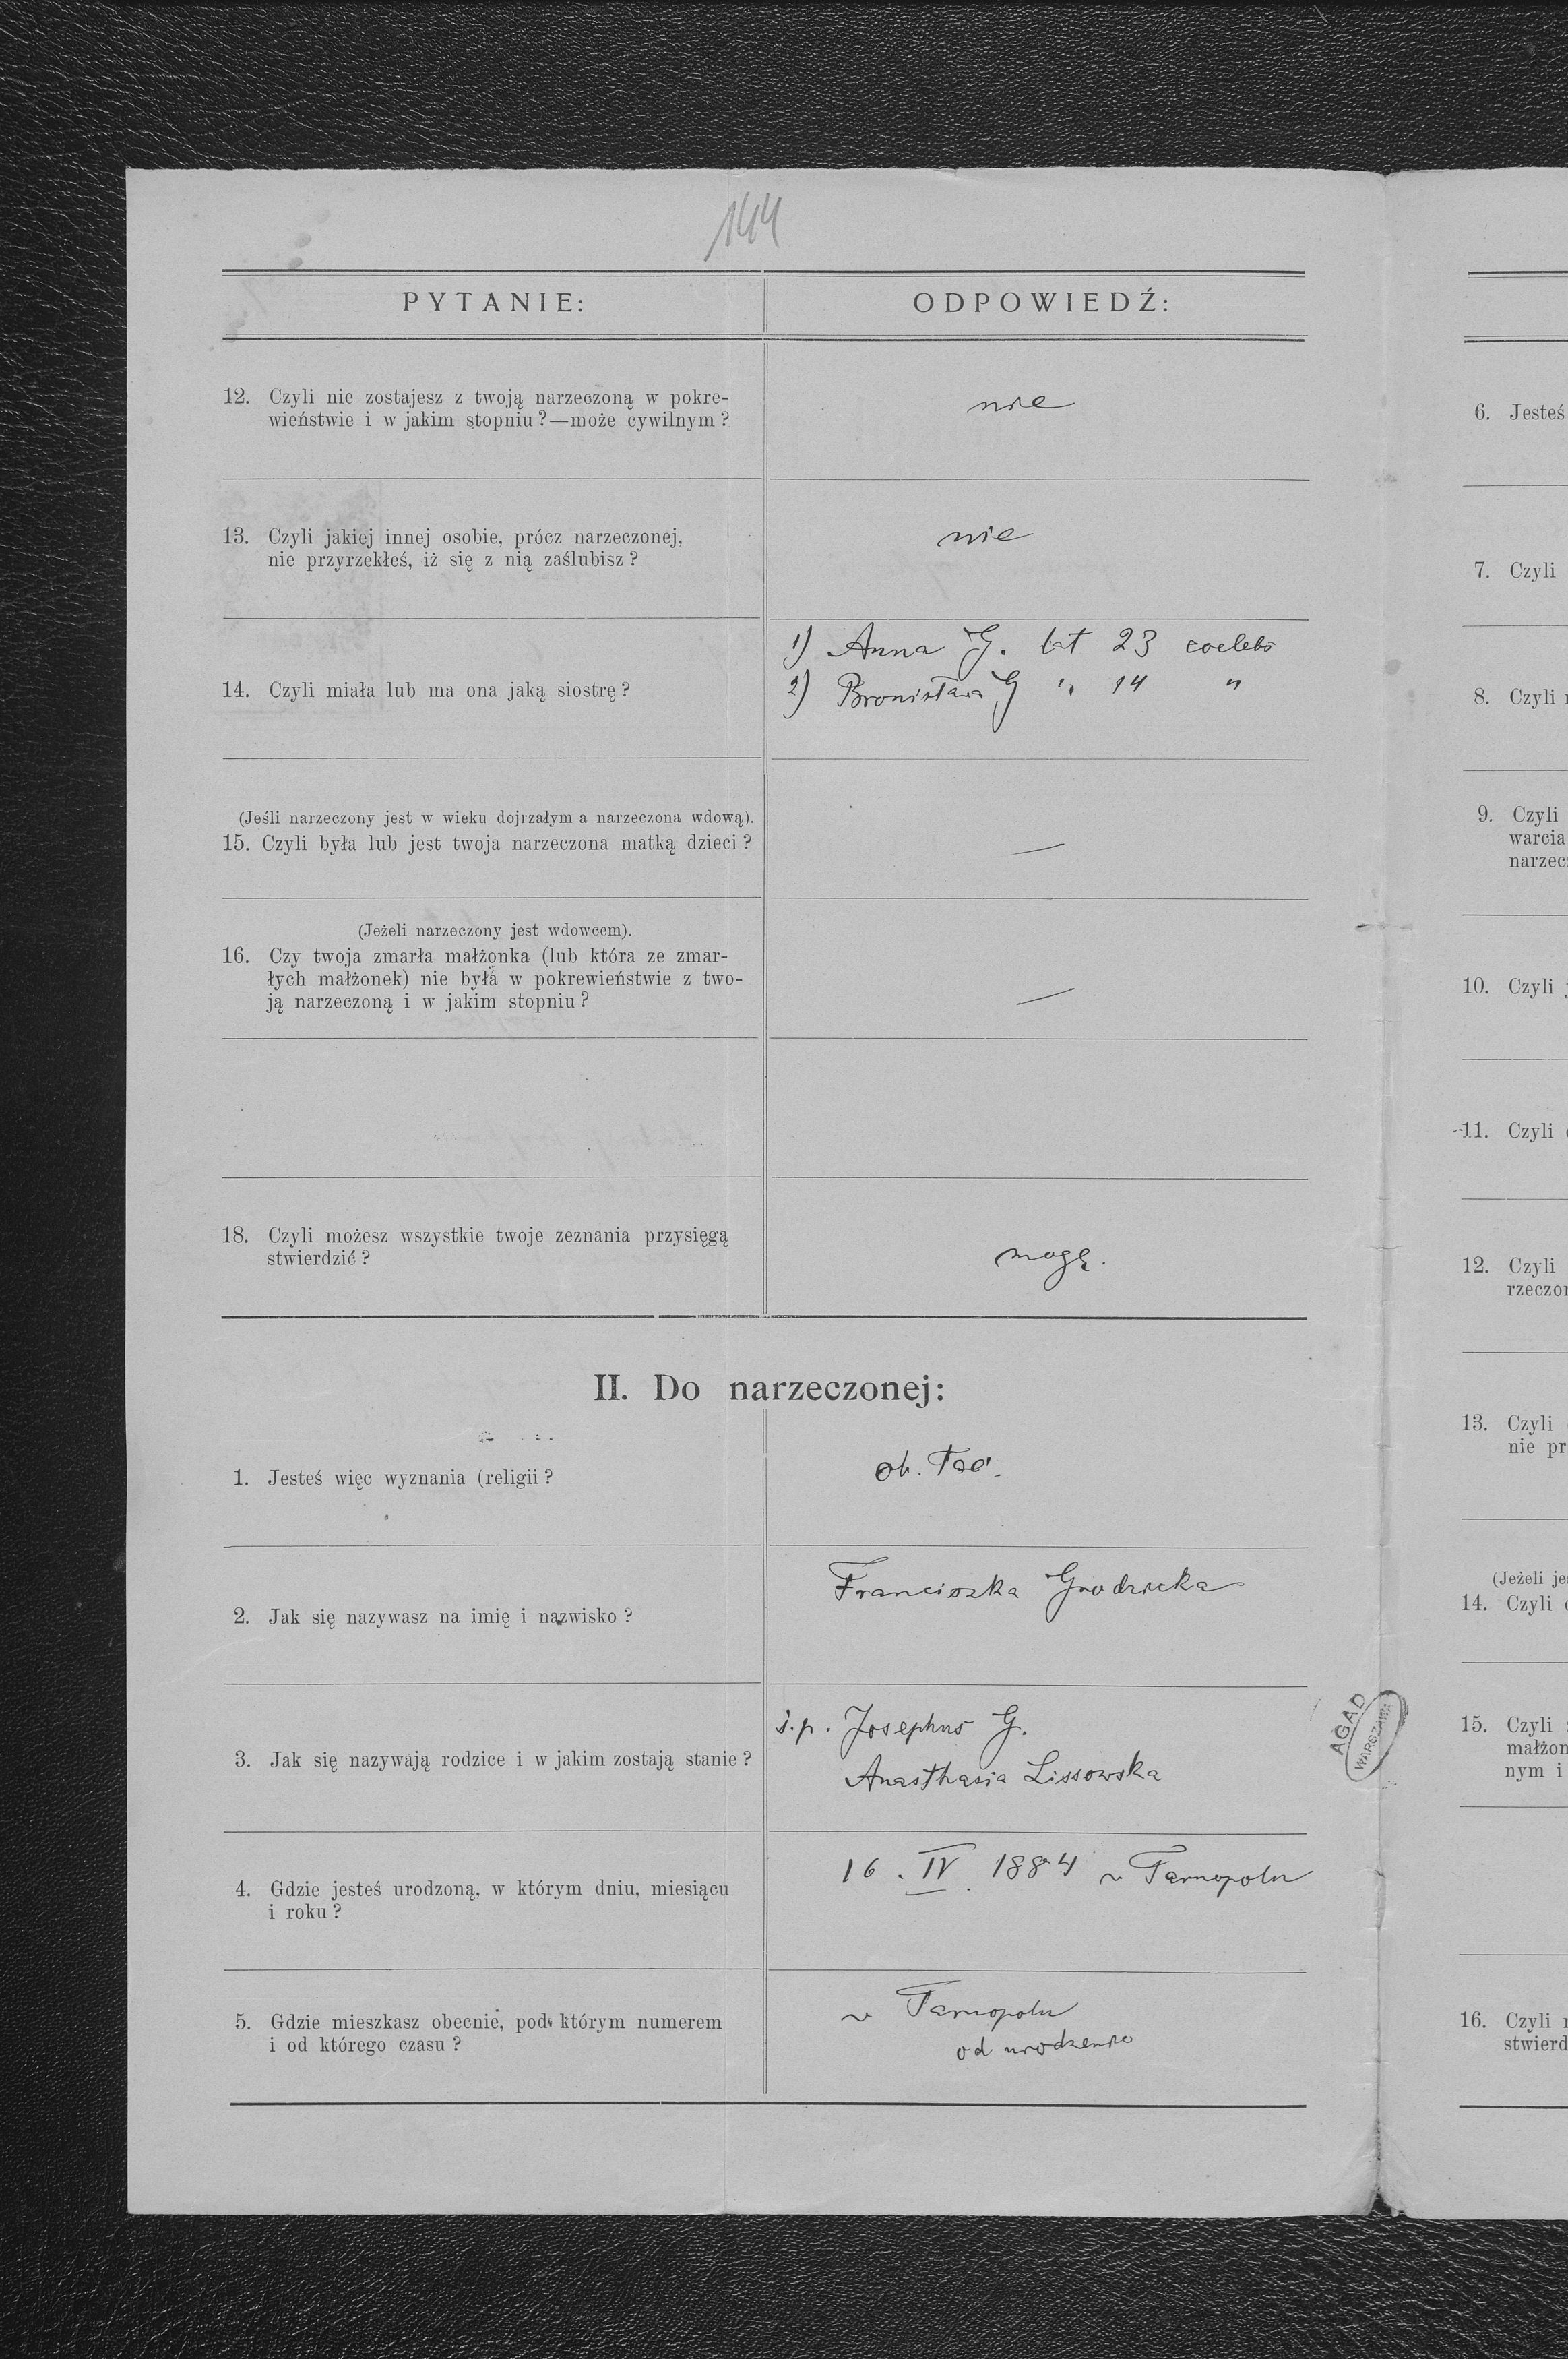 144
PYTANIE:
ODPOWIEDŹ:
12. Czyli nie zostajesz z twoją narzeczoną w pokre-
wieństwie i w jakim stopniu?—może cywilnym?
nie
13. Czyli jakiej innej osobie, prócz narzeczonej,
nie przyrzekłeś, iż się z nią zaślubisz?
nie
14. Czyli miała lub ma ona jaką siostrę?
1) Anna G. lat 23 coelebs
2) Bronisława G " 14 "
(Jeśli narzeczony jest w wieku dojrzałym a narzeczona wdową).
15. Czyli była lub jest twoja narzeczona matką dzieci?
—
(Jeżeli narzeczony jest wdowcem).
16. Czy twoja zmarła małżonka (lub która ze zmar-
łych małżonek) nie była w pokrewieństwie z two-
ją narzeczoną i w jakim stopniu?
—
18. Czyli możesz wszystkie twoje zeznania przysięgą
stwierdzić?
mogę.
II. Do narzeczonej:
1. Jesteś więc wyznania (religii?
ob. łac.
2. Jak się nazywasz na imię i nazwisko?
Franciszka Grodzicka
3. Jak się nazywają rodzice i w jakim zostają stanie?
ś.p. Josephus G.
Anasthasia Lissowska
4. Gdzie jesteś urodzoną, w którym dniu, miesiącu
i roku?
16. IV. 1884 w Tarnopolu
5. Gdzie mieszkasz obecnie, pod którym numerem
i od którego czasu?
w Tarnopolu
od urodzenia
AGAD
WARSZAWA
6. Jesteś
7. Czyli
8. Czyli
9. Czyli
warcia
narzec
10. Czyli
11. Czyli
12. Czyli
rzeczon
13. Czyli
nie pr
(Jeżeli je
14. Czyli
15. Czyli
małżon
nym i
16. Czyli
stwierd